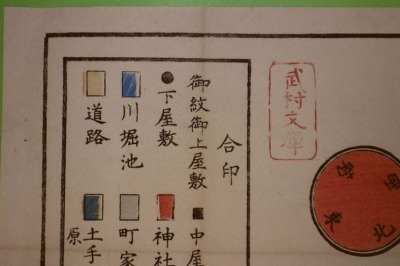 武村文庫
北
東
合印
御紋御上屋敷
中屋
下屋敷
神社
川堀池
町家
道路
土手
原